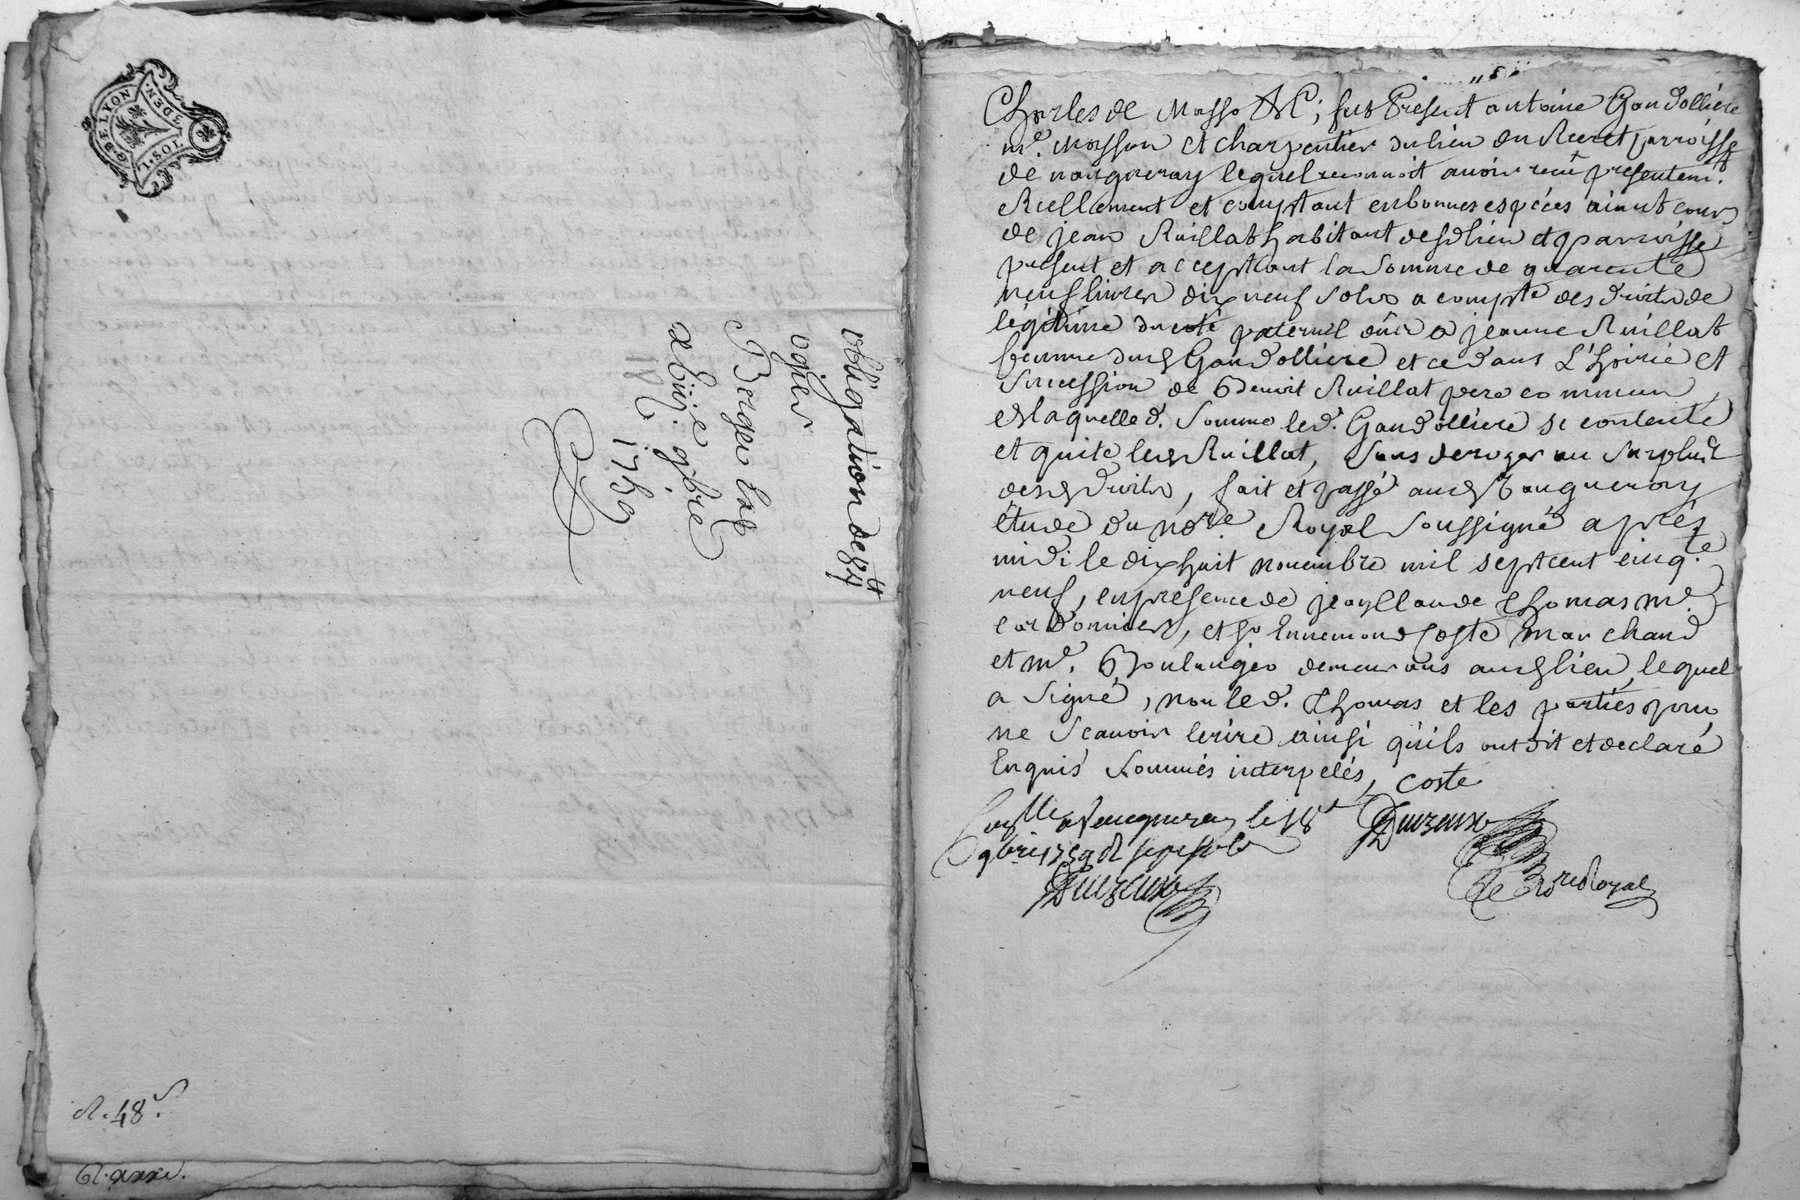 G. DE LYON
1. SOL
DEN
obligation de 84 tt
ogier
Berger lad
xbiije 9bre
1759
R. 48 s.
R. xxxe.
Charles de Masso &c; fut Present antoine Gandolliere
me. Masson et charpentier du lieu du Recret parroisse
de vaugneray lequel reconnoit avoir receu presentemt.
Reellement et comptant en bonnes especes aiant cours
de jean Ruillat habitant desd lieu et parroisse
present et acceptant la somme de quarente
neuf livres dix neuf sols a compte des droits de
légitime du coté paternel dûs a jeanne Ruillat
femme dud Gandolliere et ce dans L'hoirie et
succession de Benoit Ruillat pere commun,
de laquelle d. somme led. Gandolliere se contente
et quite led Ruillat, sans deroger au surplus
desd droits, fait et passé aud Vaugneray
étude du nore. Royal soussigné après
midi le dix huit novembre mil sept cent cinqte.
neuf, en presence de jean Claude Thomas me.
cordonnier, et sr Ennemond Coste Marchand
et me. Boulanger demeurans aud lieu, lequel
a signé, non led. Thomas et les parties pour
ne scavoir lecrire ainsi qu'ils ont dit et declaré
Enquis sommés interpelés, Coste
a Vaugneray le 18e
9bre 1759 R